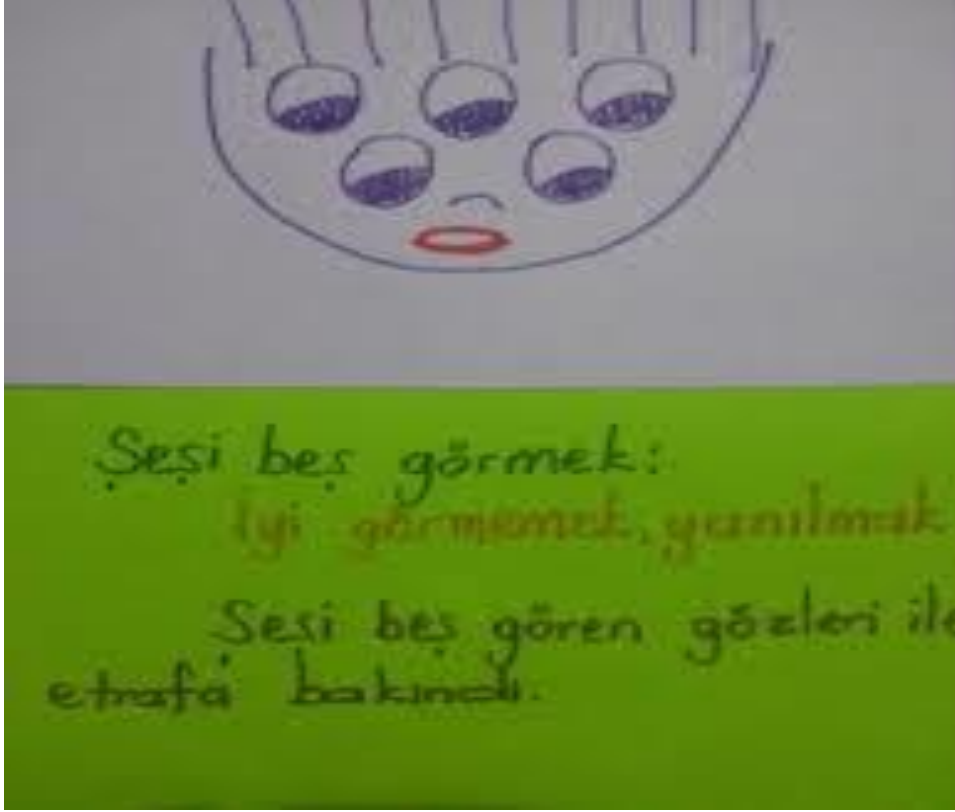 Şeşi beş görmek:
iyi görmemek, yanılmak
Şeşi beş gören gözleri ile
etrafa bakındı.